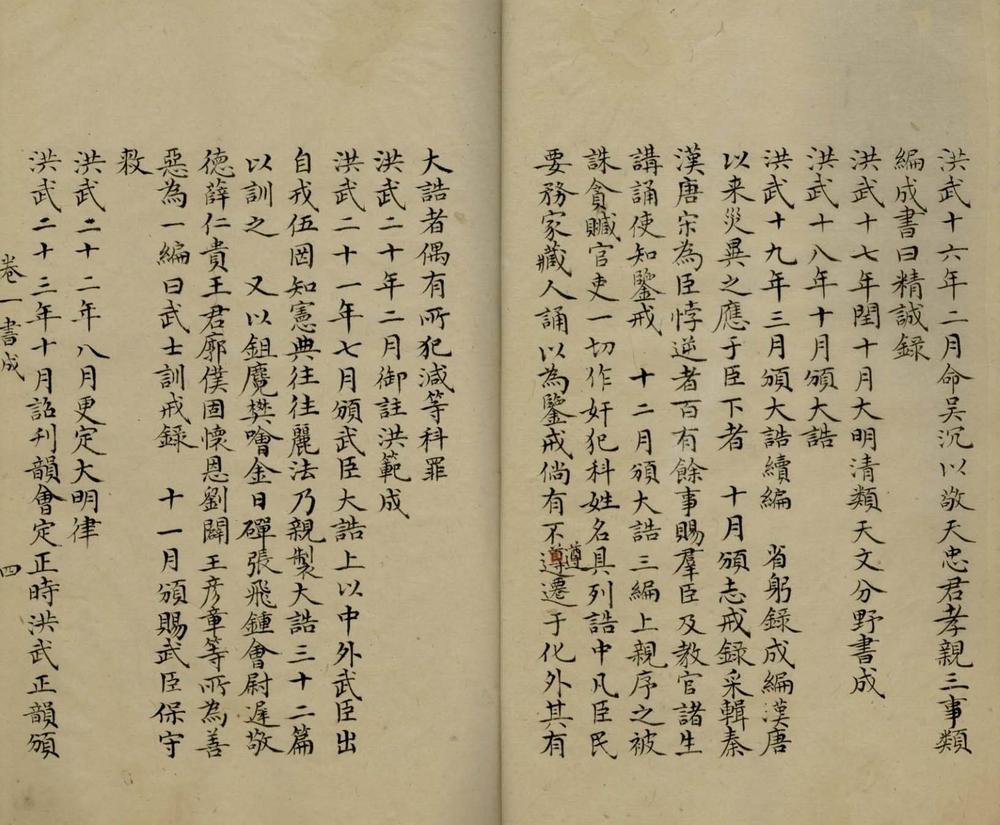 洪武十六年二月命吳沉以敬天忠君孝親三事類
編成書曰精誠録
洪武十七年閏十月大明清類天文分野書成
洪武十八年十月頒大誥
洪武十九年三月頒大誥續編　省躬録成編漢唐
以来災異之應于臣下者　十月頒志戒録采輯秦
漢唐宋為臣悖逆者百有餘事賜羣臣及教官諸生
講誦使知鑒戒　十二月頒大誥三編上親序之被
誅貪贓官吏一切作奸犯科姓名具列誥中凡臣民
要務家藏人誦以為鑒戒倘有不遵遷于化外其有
遵
大誥者偶有所犯減等科罪
洪武二十年二月御註洪範成
洪武二十一年七月頒武臣大誥上以中外武臣出
自戎伍罔知憲典往往麗法乃親製大誥三十二篇
以訓之　又以鉏麑樊噲金日磾張飛鍾會尉遲敬
德薛仁貴王君廓僕固懷恩劉闢王彦章等所為善
惡為一編曰武士訓戒録　十一月頒賜武臣保守
敕
洪武二十二年八月更定大明律
洪武二十三年十月詔刋韻會定正時洪武正韻頒
卷一書成
四